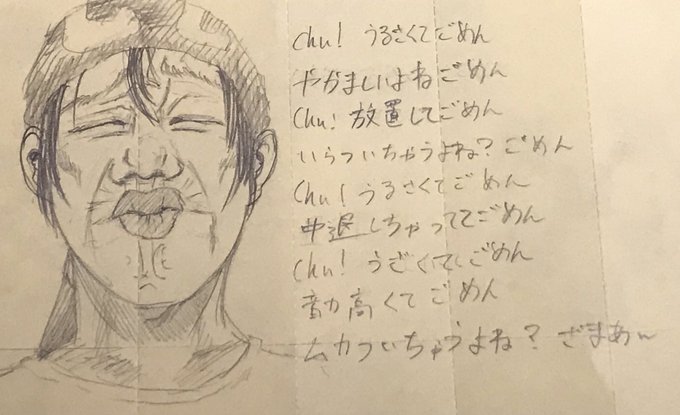 Chu! うるさくてごめん
やかましいよねごめん
Chu! 放置してごめん
いらついちゃうよね？ごめん
Chu! うるさくてごめん
中退しちゃっててごめん
Chu! うざくてごめん
高くてごめん
ムカついちゃうよね？ざまあん